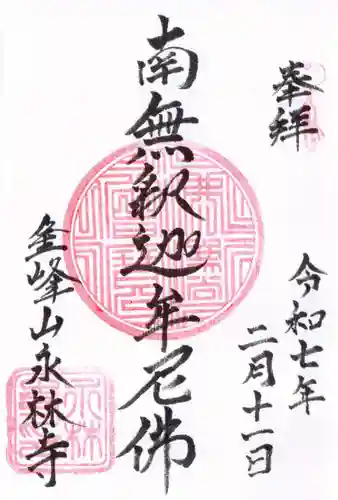 奉拝
令和七年
二月十一日
南無釈迦牟尼佛
金峰山永林寺